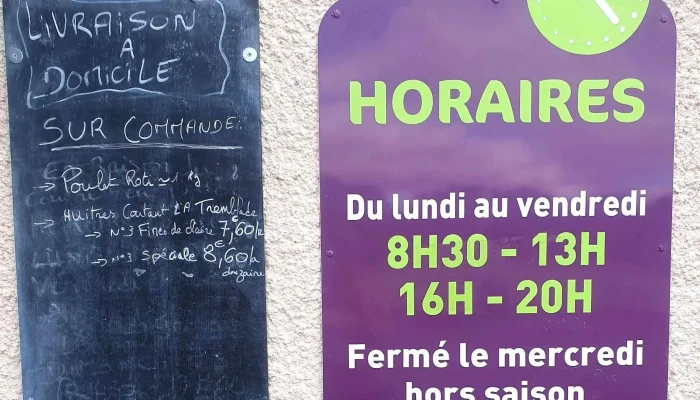 LIVRAISON
A
DOMICILE
SUR COMMANDE:
→ Poulet Roti ≃ 1 kg
→ Huitres Coutant LA Tremblade
→ N°3 Fines de claire 7,60€/a
→ N°3 Spéciale 8,60€/a
douzaine
HORAIRES
Du lundi au vendredi
8H30 - 13H
16H - 20H
Fermé le mercredi
hors saison